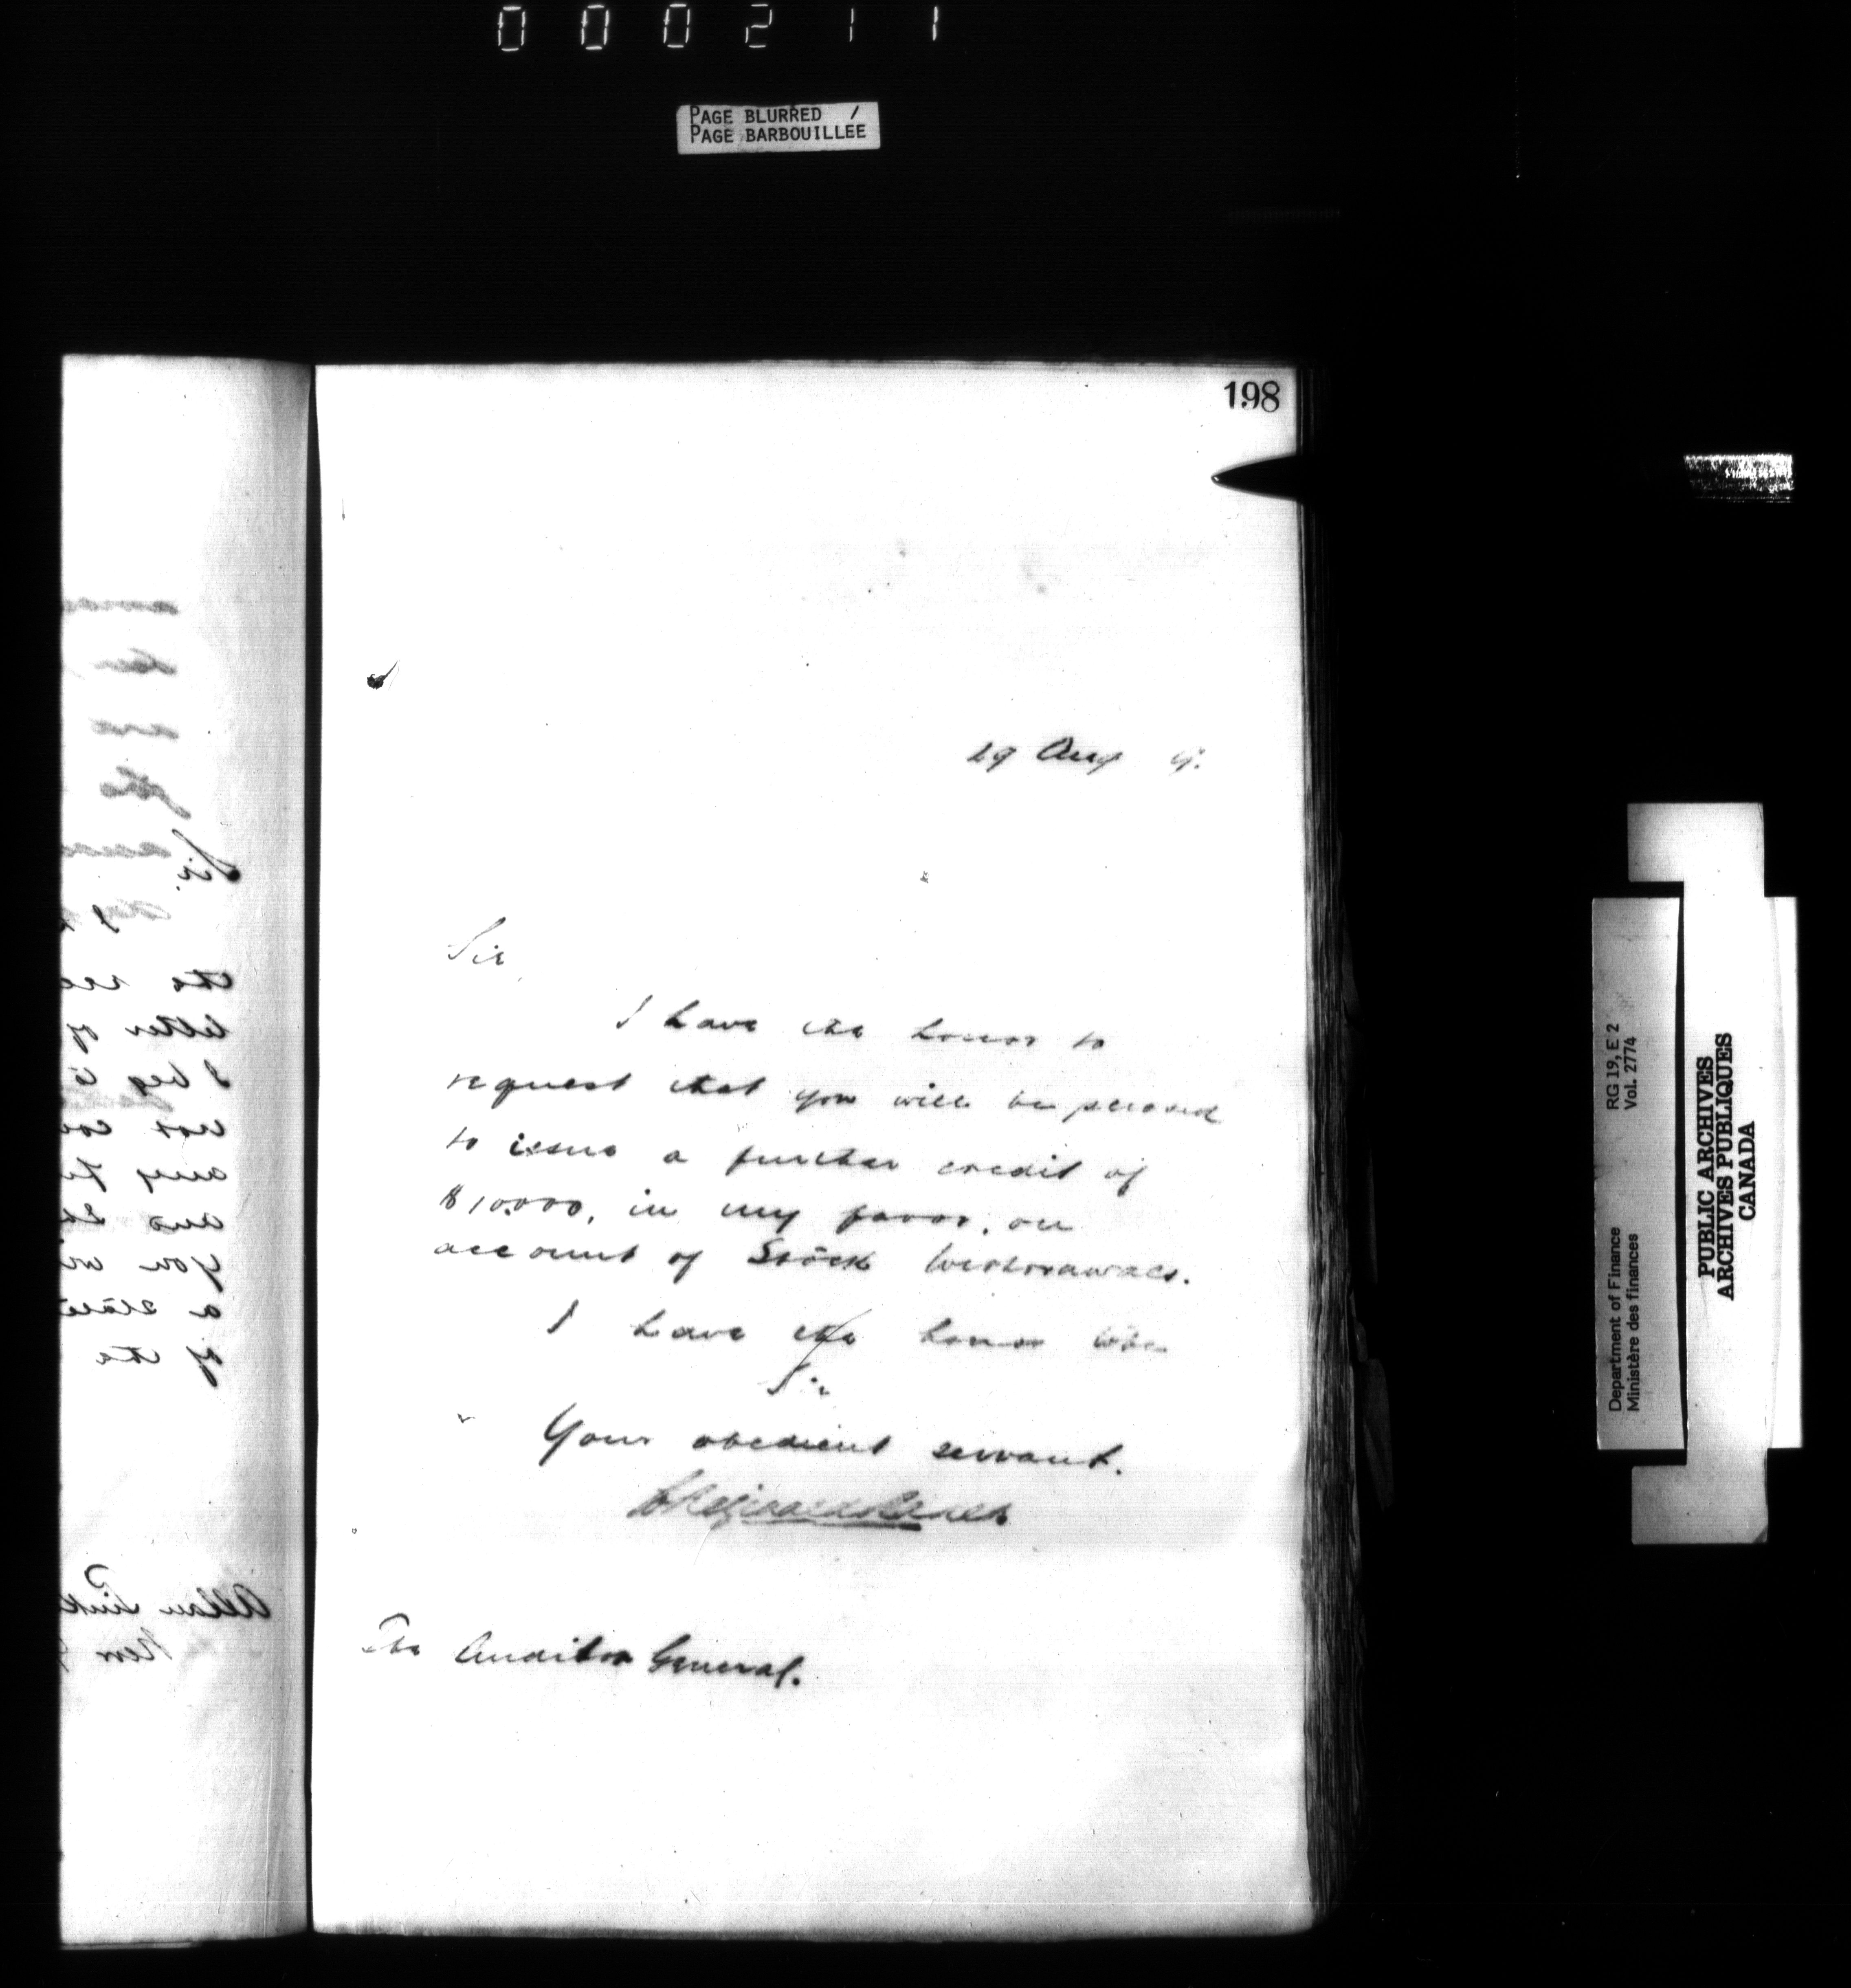 000211
PAGE BLURRED /
PAGE BARBOUILLEE
198
29 Aug 9.
Sir
I have the honor to
request that you will be pleased
to issue a further credit of
$10,000, in my favor, on
account of Stock Withdrawals.
I have the honor to be
Sir
Your obedient servant.
The Auditor General.
RG 19, E 2
Vol. 2774
Department of Finance
Ministère des finances
PUBLIC ARCHIVES
ARCHIVES PUBLIQUES
CANADA